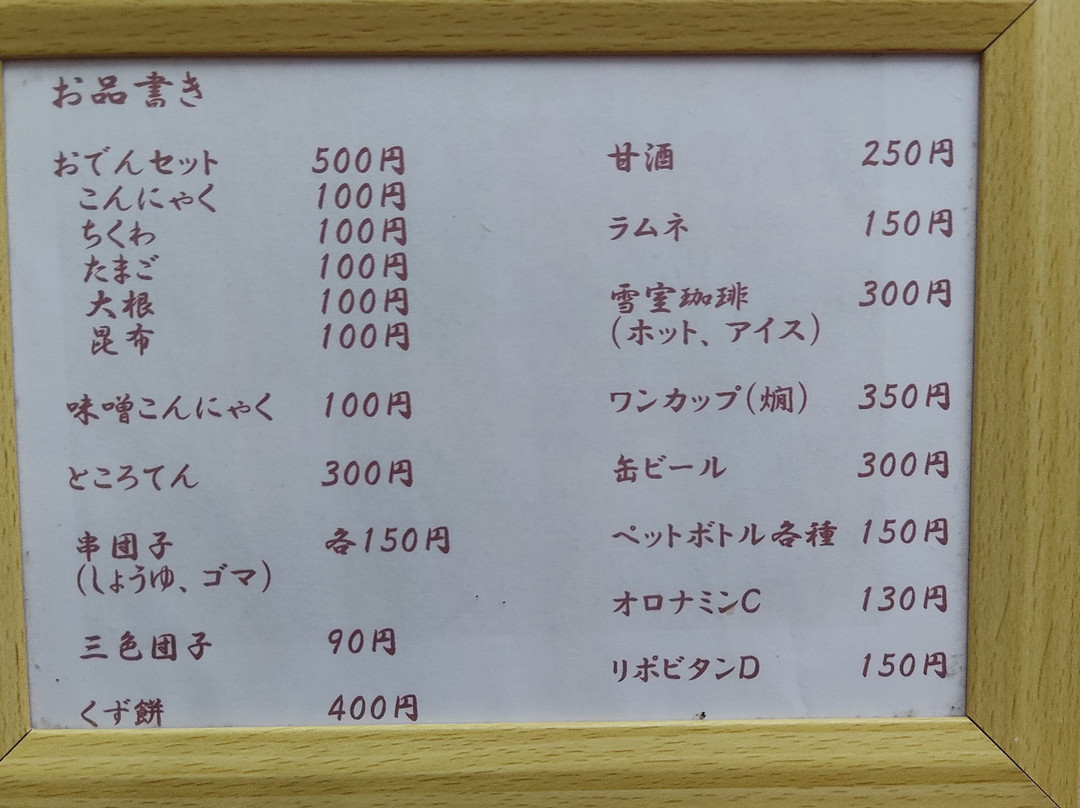 お品書き
おでんセット 500円
こんにゃく 100円
ちくわ 100円
たまご 100円
大根 100円
昆布 100円
味噌こんにゃく 100円
ところてん 300円
串団子 各150円
(しょうゆ、ゴマ)
三色団子 90円
くず餅 400円
甘酒 250円
ラムネ 150円
雪室珈琲 300円
(ホット、アイス)
ワンカップ(燗) 350円
缶ビール 300円
ペットボトル各種 150円
オロナミンC 130円
リポビタンD 150円